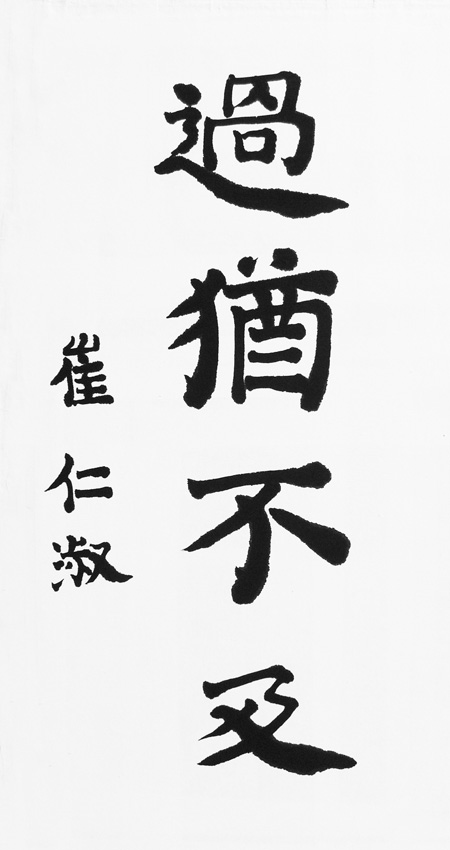 過猶不及
崔仁淑